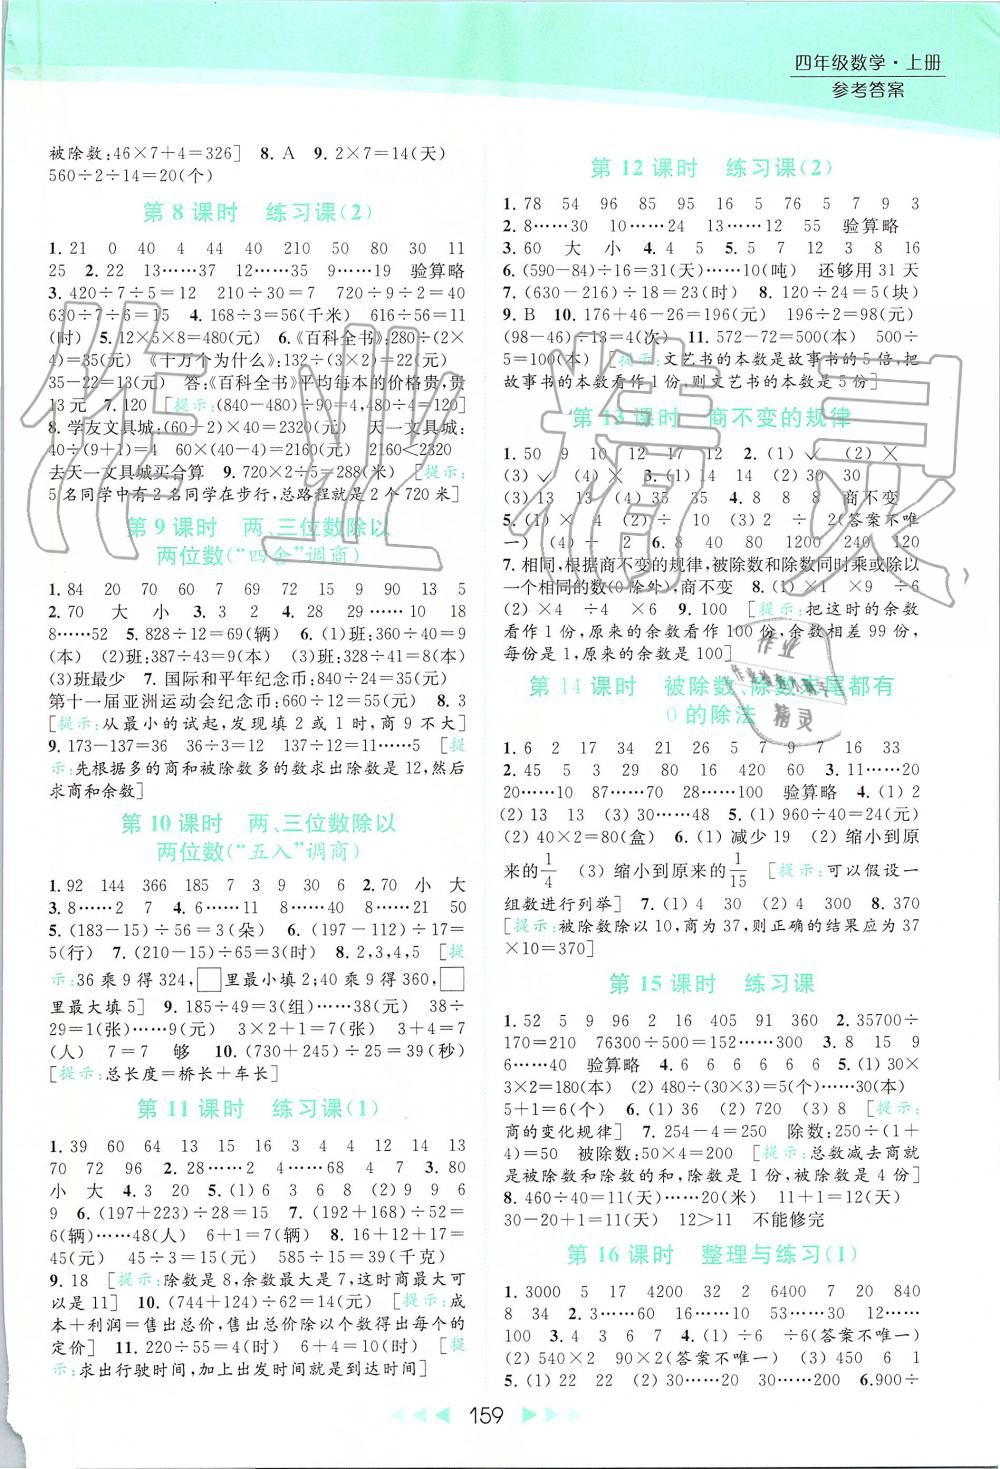 四年级数学·上册
参考答案
被除数:46×7+4=326] 8. A 9. 2×7=14(天)
560÷2÷14=20(个)
第 8 课时 练习课(2)
1. 21 0 40 4 44 40 210 50 80 30 11
25 2. 22 13……37 12 13……15 验算略
3. 420÷7÷5=12 210÷30=7 720÷9÷2=40
630÷7÷6=15 4. 168÷3=56(千米) 616÷56=11
(时) 5. 12×5×8=480(元) 6.《百科全书》:280÷(2×
4)=35(元) 《十万个为什么》:132÷(3×2)=22(元)
35-22=13(元) 答:《百科全书》平均每本的价格贵,贵
13元 7. 120 [提示:(840-480)÷90=4,480÷4=120]
8. 学友文具城:(60-2)×40=2320(元) 天一文具城:
40÷(9+1)=4 60×(40-4)=2160(元) 2160<2320
去天一文具城买合算 9. 720×2÷5=288(米) [提示:
5名同学中有2名同学在步行,总路程就是2个720米]
第 9 课时 两、三位数除以
两位数(“四舍”调商)
1. 84 20 70 60 4 7 20 5 90 13 5
2. 70 大 小 3. 3 2 4. 28 29……10 18
8……52 5. 828÷12=69(辆) 6. (1)班:360÷40=9
(本) (2)班:387÷43=9(本) (3)班:350÷42=8(本)
(3)班最少 7. 国际和平年纪念币:840÷24=35(元)
第十一届亚洲运动会纪念币:660÷12=55(元) 8. 3
[提示:从最小的试起,发现填2或1时,商9不大]
9. 173-137=36 36÷3=12 137÷12=11……5 [提
示:先根据多的商和被除数多的数求出除数是12,然后
求商和余数]
第 10 课时 两、三位数除以
两位数(“五入”调商)
1. 92 144 366 185 7 3 9 30 6 2. 70 小 大
3. 8……2 7 4. 6……11 8……40 8……21 50
5. (183-15)÷56=3(朵) 6. (197-112)÷17=
5(行) 7. (210-15)÷65=3(时) 8. 2,3,4,5 [提
示:36乘9得324,□里最小填2;40乘9得360,□
里最大填5] 9. 185÷49=3(组)……38(元) 38÷
29=1(张)……9(元) 3×2+1=7(张) 3+4=7
(人) 7=7 够 10. (730+245)÷25=39(秒)
[提示:总长度=桥长+车长]
第 11 课时 练习课(1)
1. 39 60 64 13 15 16 3 4 4 12 14 13
70 72 96 2. 28……2 4……6 4……7 3. 80
小 大 4. 3 20 5. (1)6 3 6 8 (2)9 9 6
9 6. (197+223)÷28=15 7. (192+168)÷52=
6(辆)……48(人) 6+1=7(辆) 8. 16+12+17=
45(元) 675÷45=15(元) 585÷15=39(千克)
9. 18 [提示:除数是8,余数最大是7,这时商最大可
以是11] 10. (744+124)÷62=14(元) [提示:成
本+利润=售出总价,售出总价除以个数得出每个的
定价] 11. 220÷55=4(时) 4+4=8(时) [提
示:求出行驶时间,加上出发时间就是到达时间]
第 12 课时 练习课(2)
1. 78 54 96 85 95 16 5 76 5 7 9 3
2. 8……30 10……24 13……12 55 验算略
3. 60 大 小 4. 4 5 5. 5 7 12 3 8 16
6. (590-84)÷16=31(天)……10(吨) 还够用31天
7. (630-216)÷18=23(时) 8. 120÷24=5(块)
9. B 10. 176+46-26=196(元) 196÷2=98(元)
(98-46)÷13=4(次) 11. 572-72=500(本) 500÷
5=100(本) [提示:文艺书的本数是故事书的5倍,把
故事书的本数看作1份,则文艺书的本数是5份]
第 13 课时 商不变的规律
1. 50 9 10 12 17 12 2. (1)√ (2)×
(3)√ (4)× 3. (1)14 14 (2)30 30
(3)13 13 (4)25 25 4. 8 8 8 商不变
5. (1)× 4 (2)÷ 2 (3)÷ 2(答案不唯
一) (4)÷ 2 6. 8 40 80 1200 40
7. 相同,根据商不变的规律,被除数和除数同时乘或除以
一个相同的数(0除外),商不变 8. (1)×1 ×9 ÷6
(2)×4 ÷4 ×6 9. 100 [提示:把这时的余数
看作1份,原来的余数看作100份,余数相差99份,
每份是1,原来的余数是100]
第 14 课时 被除数、除数末尾都有
0的除法
1. 6 2 17 34 21 26 5 7 9 7 16 33
2. 45 5 3 29 80 16 420 60 3. 11……20
20……10 87……70 28……200 验算略 4. (1)2
(2)13 13 (3)2 50 5. (1)960÷40=24(元)
(2)40×2=80(盒) 6. (1)减少19 (2)缩小到原
来的1/4 (3)缩小到原来的1/15 [提示:可以假设一
组数进行列举] 7. (1)4 30 (2)4 300 8. 370
[提示:被除数除以10,商为37,则正确的结果应为37
×10=370]
第 15 课时 练习课
1. 52 5 9 96 2 16 405 91 360 2. 35700÷
170=210 76300÷500=152……300 3. 8 15 9
6……40 验算略 4. 6 6 6 6 6 6 5. (1)30×
3×2=180(本) (2)480÷(30×3)=5(个)……30(本)
5+1=6(个) 6. (1)36 (2)720 (3)8 [提示:
商的变化规律] 7. 254-4=250 除数:250÷(1+
4)=50 被除数:50×4=200 [提示:总数减去商就
是被除数和除数的和,除数是1份,被除数是4份]
8. 460÷40=11(天)……20(米) 11+1=12(天)
30-20+1=11(天) 12>11 不能修完
第 16 课时 整理与练习(1)
1. 3000 5 17 4200 32 2 6400 7 20 840
8 34 2. 3……60 16……10 53……30 12……
100 3. 4 3 6 7 4. (1)÷ ÷6(答案不唯一)
(2)540×2 90×2(答案不唯一) (3)450 6 1
5. (1)22 22 (2)23 23 (3)25 25 6. 900÷
159
作业精灵
作业
精灵